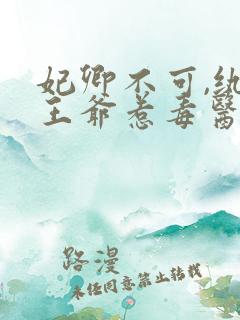 妃卿不可,纨
王爷惹毒醫
路漫
未经同意禁止转载